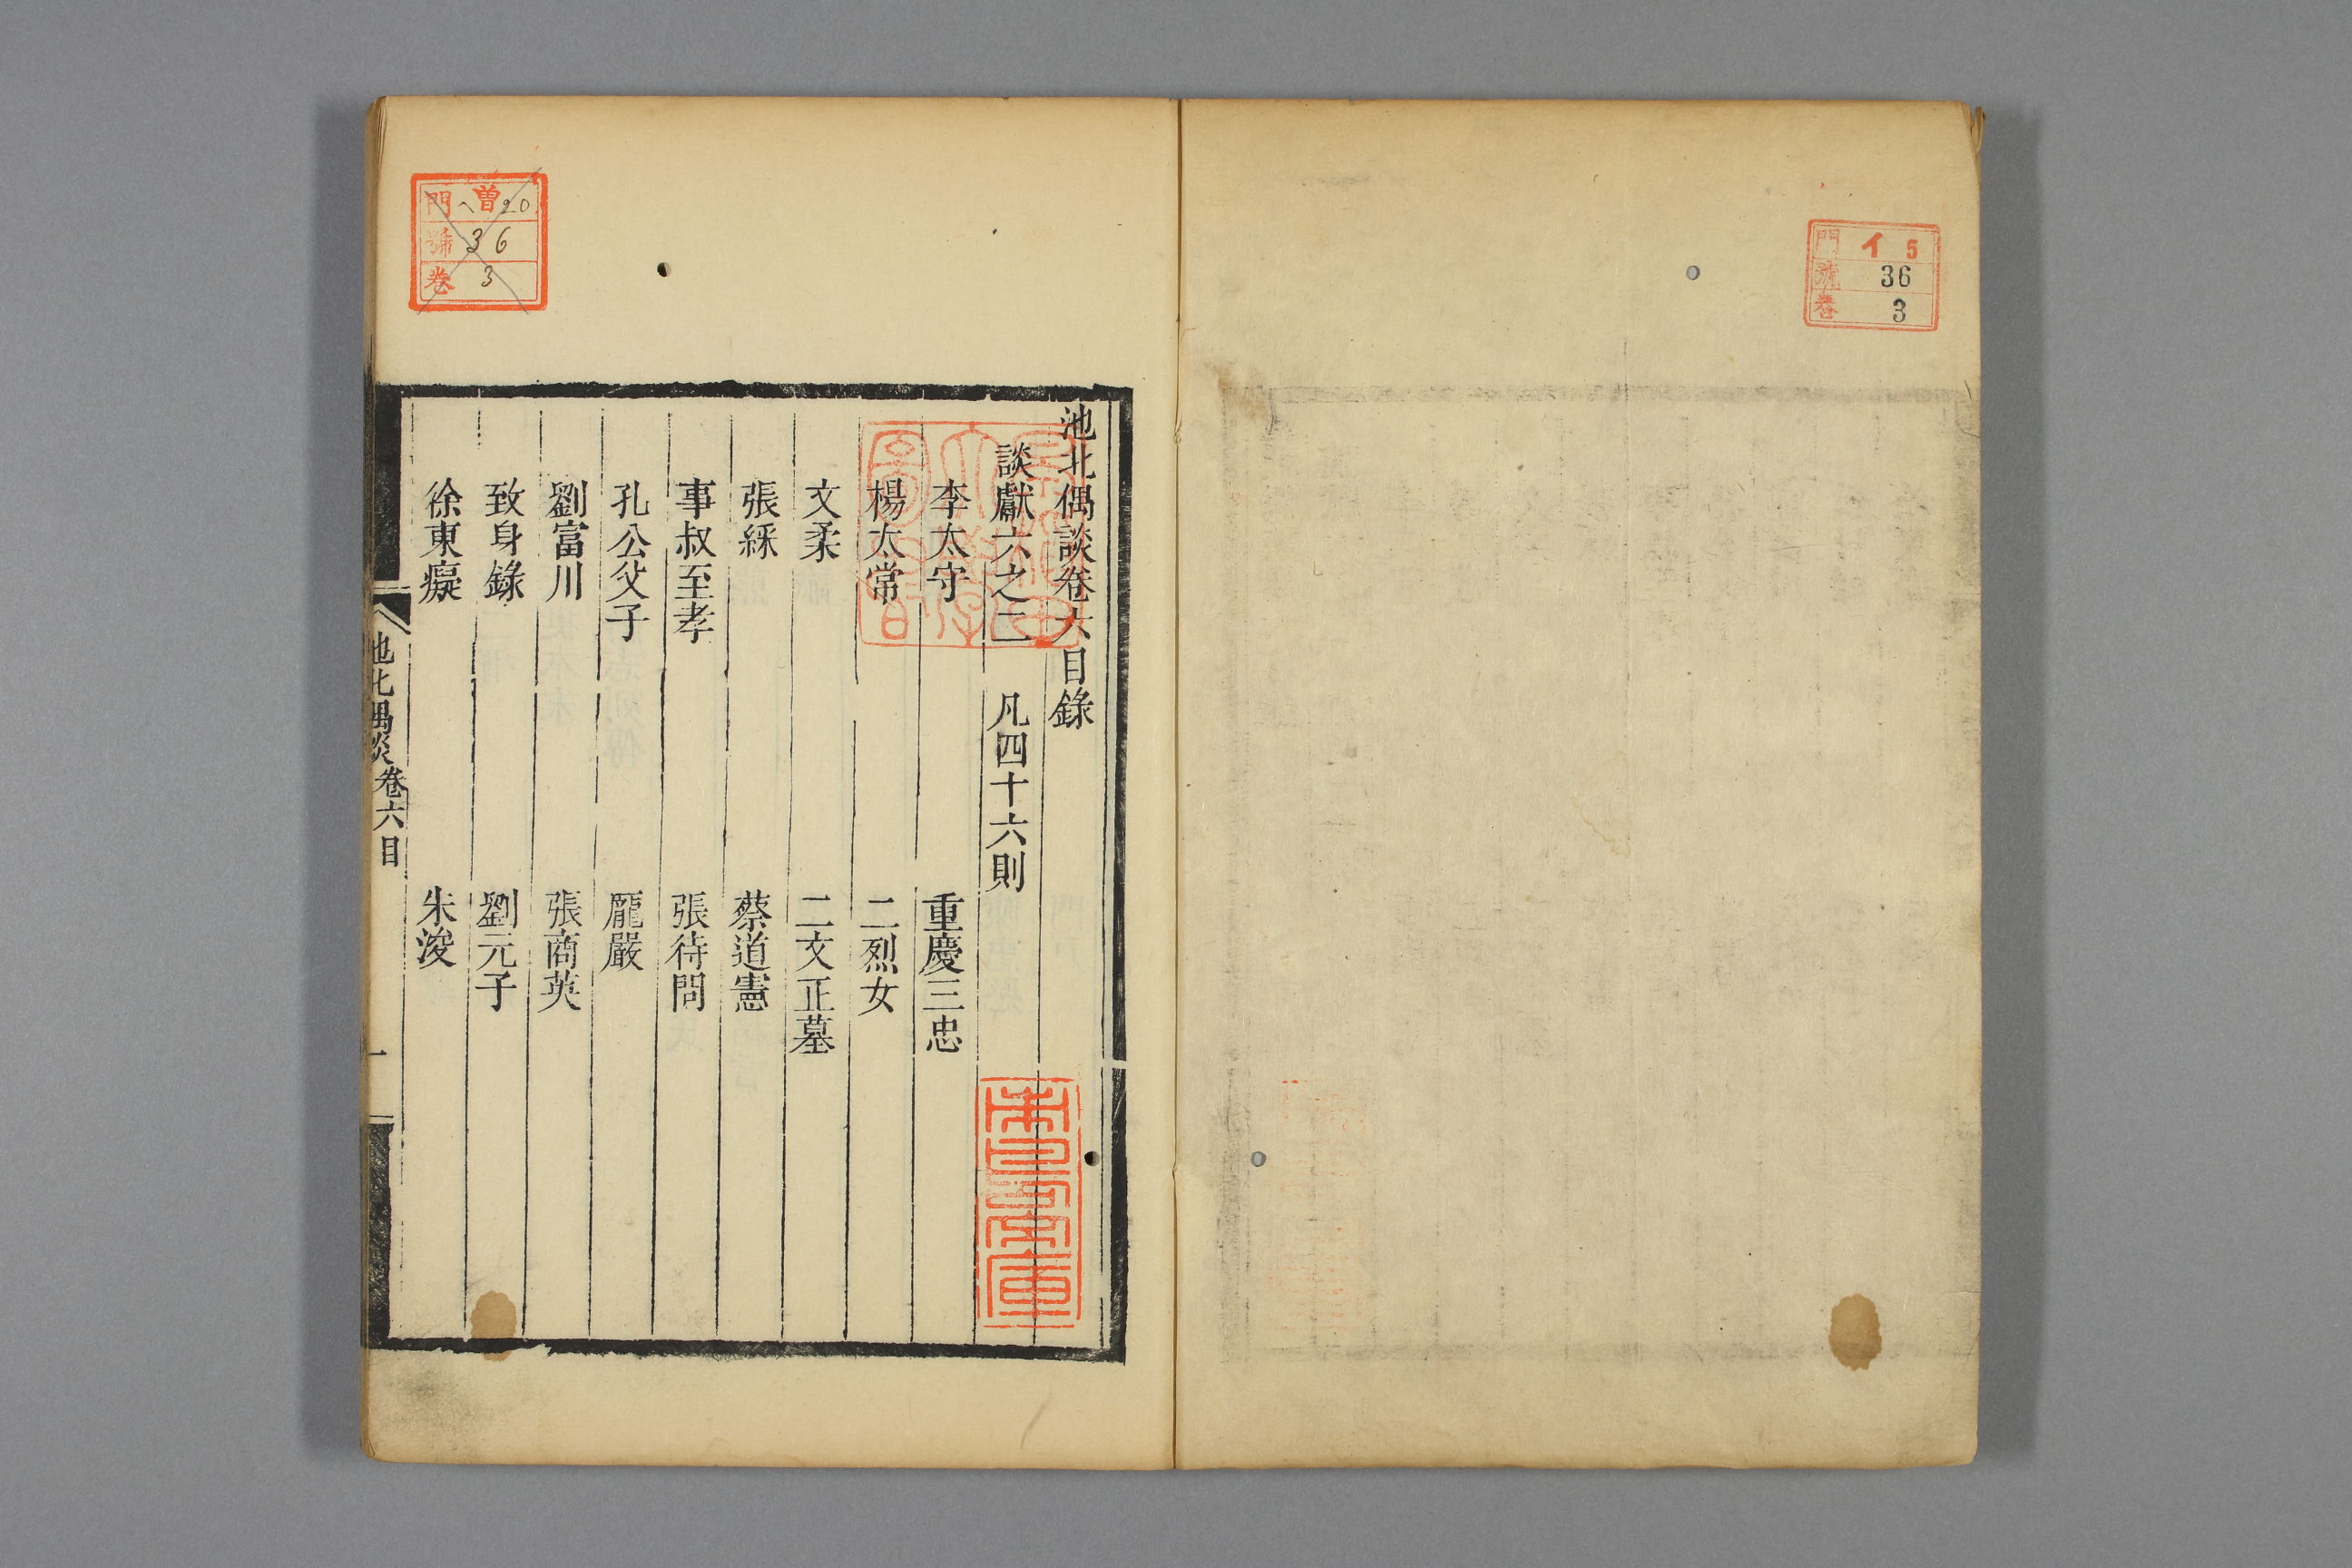 門 イ 5
號 36
卷 3
池北偶談卷六目錄
談獻六之二 凡四十六則
李太守 重慶三忠
楊太常 二烈女
文柔 二文正墓
張綵 蔡道憲
事叔至孝 張待問
孔公父子 龐嚴
劉富川 張商英
致身錄 劉元子
徐東癡 朱浚
池北偶談 卷六目
一
曾
門 へ 20
號 36
卷 3